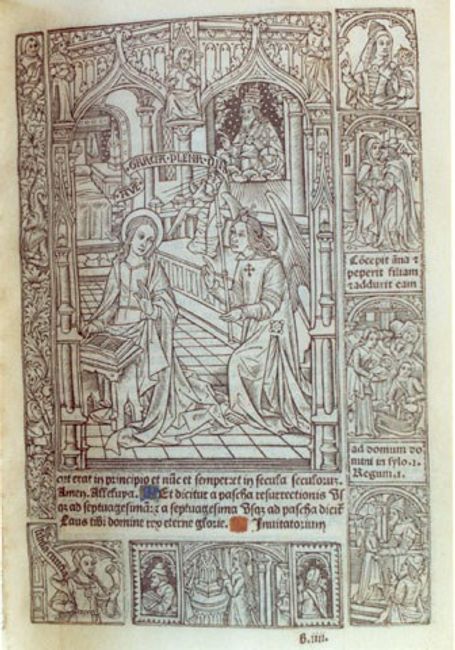 AVE GRACIA PLENA DÑS
Cõcepit ãna ⁊
peperit filiam
⁊ adduxit eam
ad domum do
mini in sylo. 1.
Regum. 1.
cut erat in principio et nũc et semper: et in secula seculorum.
Amen. Alleluya. Et dicitur a pascha resurrectionis vs
qz ad septuagesimã: ⁊ a septuagesima vsqz ad pascha dicit̃
Laus tibi domine rex eterne glorie. Inuitatorium
b.iiii.